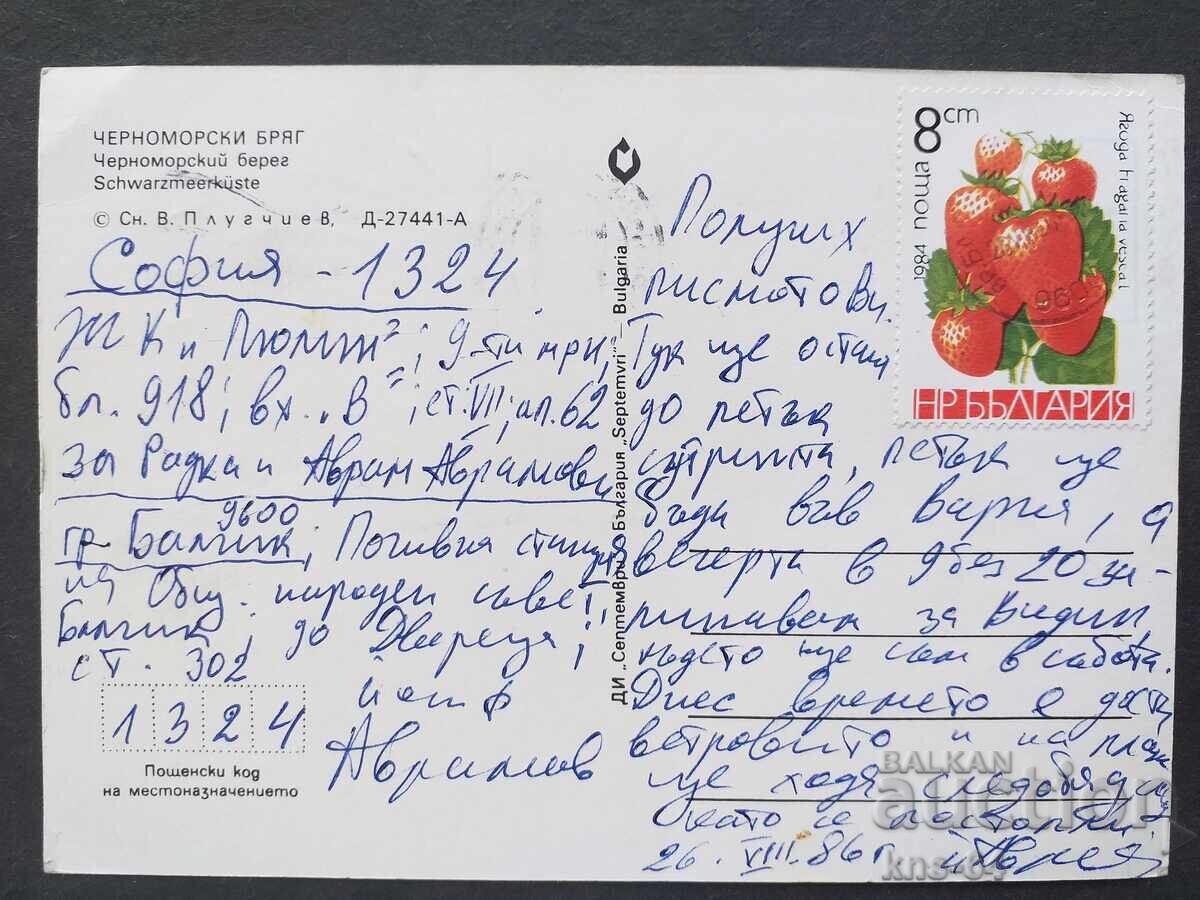 ЧЕРНОМОРСКИ БРЯГ
Черноморский берег
Schwarzmeerküste
© Сн. В. Плугчиев, Д-27441-А
София - 1324
ЖК „Люлин", 9-ти мкр;
бл. 918; вх. „В"; ет. VII; ап. 62
за Радка и Аврам Аврамови
гр. Балчик, 9600 Почивна станция
на Общ. народен съвет,
Балчик, до Двореца;
ст. 302
Йосиф
Аврамов
1 3 2 4
Пощенски код
на местоназначението
ДИ „Септември" България „Septemvri" – Bulgaria
8 ст
поща
1984
Ягода Fragaria vesca L
НР БЪЛГАРИЯ
960
Получих
писмото Ви.
Тук ще остана
до петък
сутринта, петък ще
бъда във Варна, а
вечерта в 9 без 20 за-
минавам за Видин
където ще съм в събота.
Днес времето е доста
ветровито и на плаж
ще ходя следобяд
като се постопли.
26. VIII. 86 г.
BALKAN
auction
kns-64